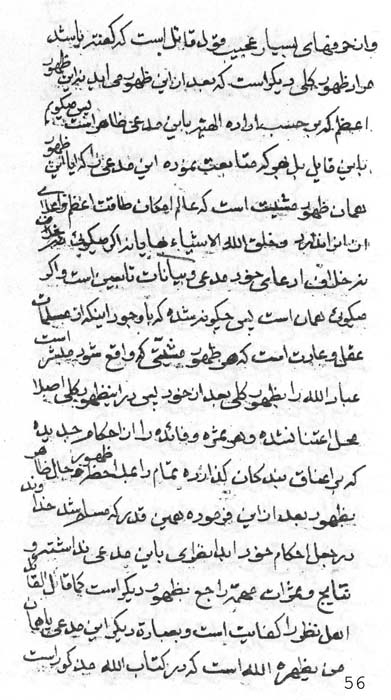 وازحرفهای بسیار عجیب قول قائل است که گفته باشد
مراد ظهور کلی دیگر است که بعد از این ظهور می اید نه این ظهور
اعظم که بر حسب اراده الهیه باین مدعی ظاهر است پس میگویم
باین قایل بل بهر که متابعت نموده این مدعی را که ایا این ظهور
همان ظهور مشیت است که عالم امکان طاقت اعظم و اعلای
از این را ندارد و خلق الله الاشیاء بها یا نه اگر میگوئی غیر
بر خلاف ادعای خود مدعی و بیانات تابعین است و اگر
میگوئی همان است پس چگونه شده که با وجود اینکه از مسلمات
عقل و عادت است که هر ظهور مشیتی که واقع شود مبشر است
عباد الله را بظهور کلی بعد از خود پس در این ظهور کلی اصلا
محل اعتنا نشده و هر ثمره و فائده را از احکام جدیده
که بر اعناق بندگان گذارده تمام را عند احضر ظهور حال ظاهر
بظهور بعد از این فرموده همین قدر که مسلم شد خداوند
در جعل احکام خود ابدا نظری باین مدعی نداشته و
نتایج و ثمرات همه راجع بظهور دیگر است کما قال القا
اهل نظر را کفایت است و بعبارة دیگر این مدعی یا همان
من یظهره الله است که در کتاب الله مذکور است
56